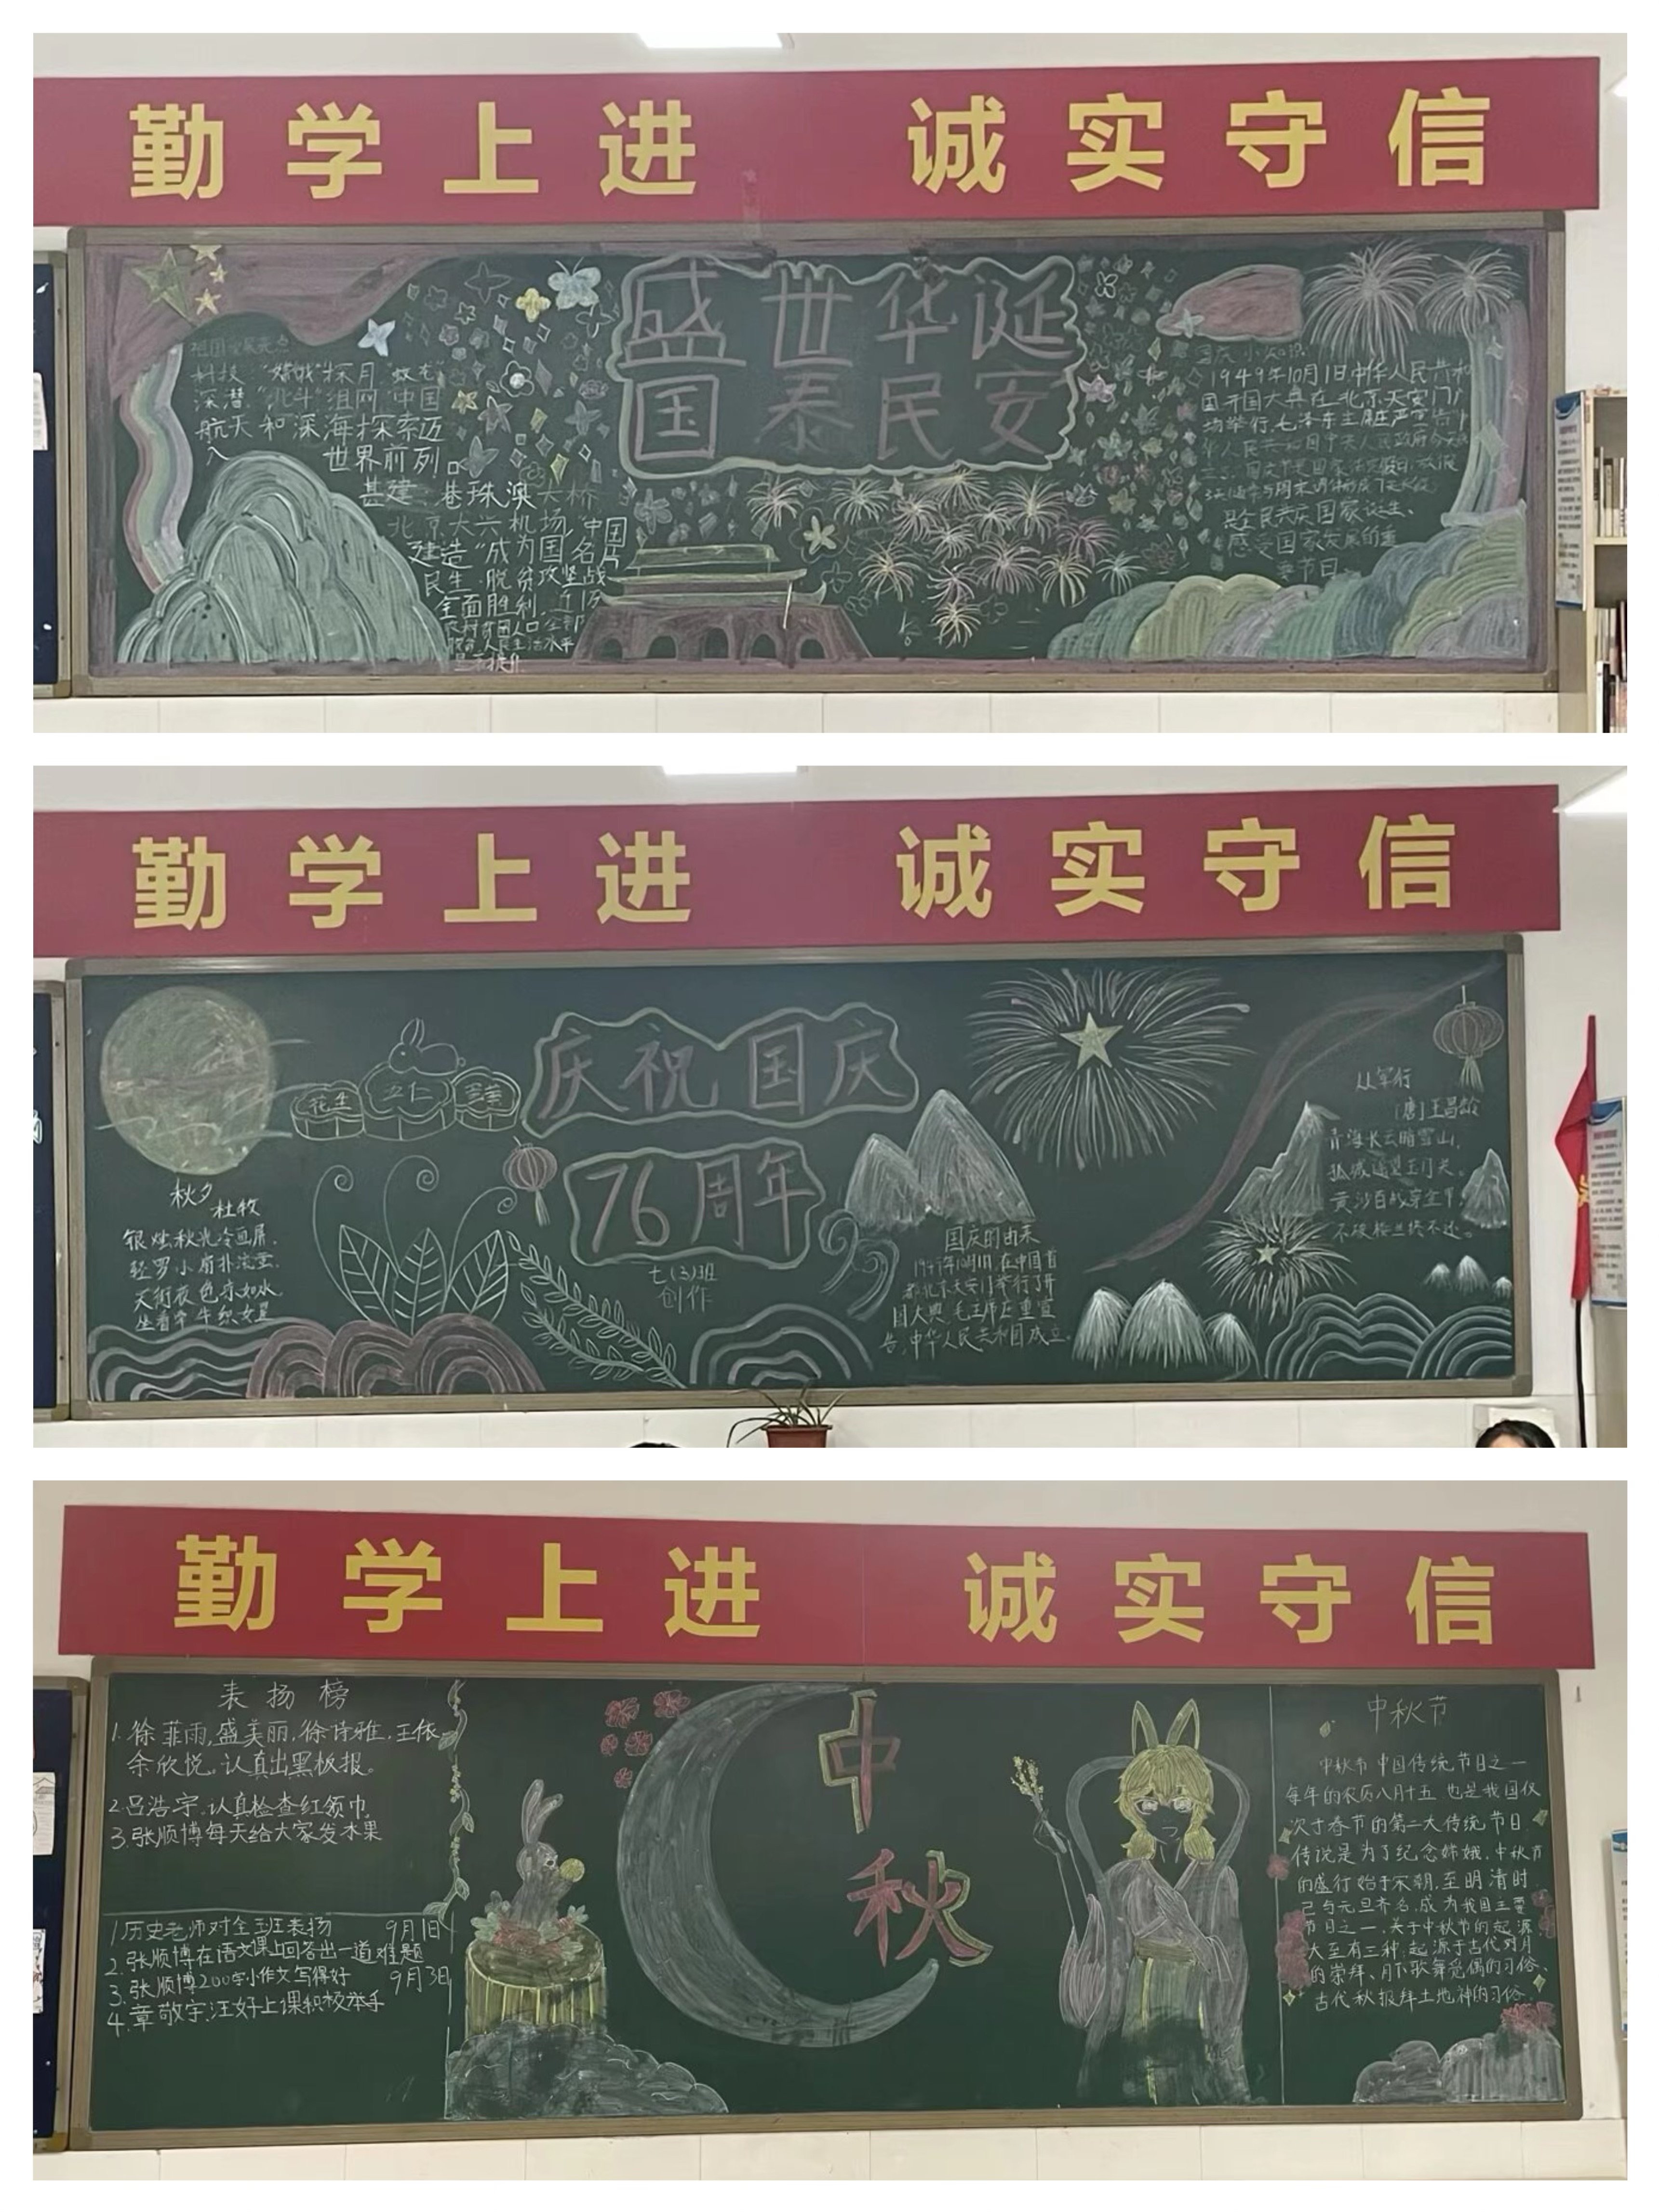 勤学上进 诚实守信
盛世华诞
国泰民安
祖国发展亮点
科技 "嫦娥"探月 "蛟龙"
深潜 "北斗"组网 中国
航天和深海探索迈
入世界前列
基建 港珠澳大桥
北京大六机场 "中国
建造"成为国名片
民生 脱贫攻坚战
全面胜利
水平
显示提升
国庆小知识
1949年10月1日中华人民共和
国开国大典在北京天安门广
场举行,毛泽东主
华人民共和国中央人民政府今天
是全民共庆国家诞生、
感受国家发展的重
要节日
勤学上进 诚实守信
庆祝国庆
76周年
七(3)班
创作
花生
五仁
秋夕
杜牧
银烛秋光冷画屏,
轻罗小扇扑流萤。
天街夜色凉如水,
坐看牵牛织女星
国庆的由来
在中国首
都北京天安门举行了开
国大典,毛主席庄重宣
告,中华人民共和国成立。
从军行
[唐]王昌龄
青海长云暗雪山,
孤城遥望玉门关。
黄沙百战穿金甲,
不破楼兰终不还。
勤学上进 诚实守信
表扬榜
1.徐菲雨,盛美丽,徐诗雅,王依
余欣悦,认真出黑板报。
2.吕浩宇,认真检查红领巾
3.张顺博每天给大家发水果
1.历史老师对全班表扬 9月1日
2.张顺博在语文课上回答出一道难题
3.张顺博200字小作文写得好 9月3日
4.章敬宇,汪好上课积极举手
中秋
中秋节
中秋节 中国传统节日之一
每年的农历八月十五 也是我国仅
次于春节的第二大传统节日
传说是为了纪念嫦娥.中秋节
的盛行始于宋朝,至明清时
已与元旦齐名,成为我国主要
节日之一.关于中秋节的起源,
大至有三种:起源于古代对月
的崇拜、月下歌舞觅偶的习俗、
古代秋报拜土地神的习俗.